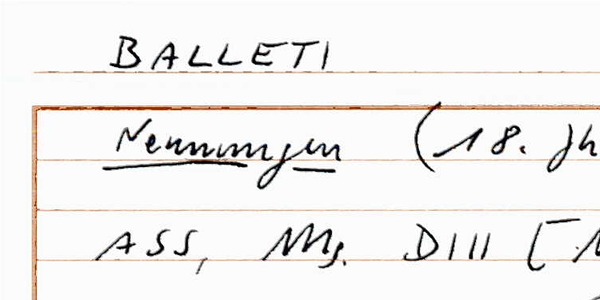 BALLETI
Nennungen (18. Jh
ASS, Ms. D III [